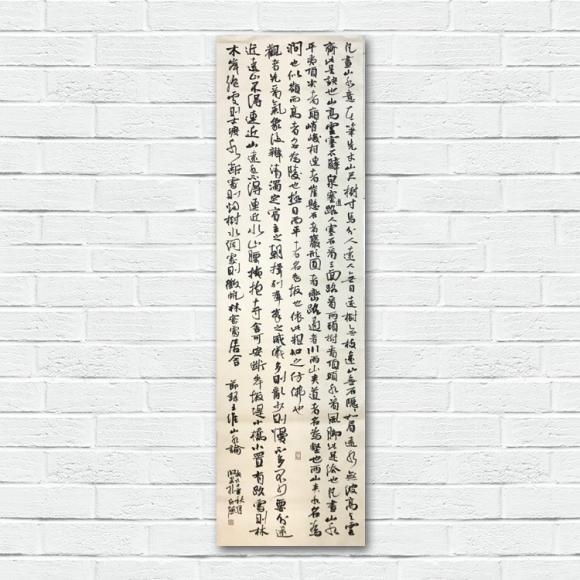 凡畫山水意在筆先丈山尺樹寸馬分人遠人無目遠樹無枝遠山無石隱隱如眉遠水無波高與雲
齊此是訣也山高雲塞石壁泉塞道路人塞石看三面路看兩頭樹看頂頭水看風脚此是法也凡畫山水
平夷頂尖者巔峭峻相連者崖懸石者巖形圓者巒路通者川兩山夾道者名為壑也兩山夾水名為
澗也似嶺而高者名為陵也極目而平者名為坂也依此粗知之仿佛也
觀者先看氣象後辨清濁定賓主之朝揖列峯之威儀多則亂少則慢不多不少要分遠
近遠山不得連近山遠水不得連近水山腰掩抱寺舍可安斷岸坂堤小橋小置有路處則林
木岸絶處則古渡水斷處則烟樹水闊處則征帆林密處居舍 節錄王維山水論